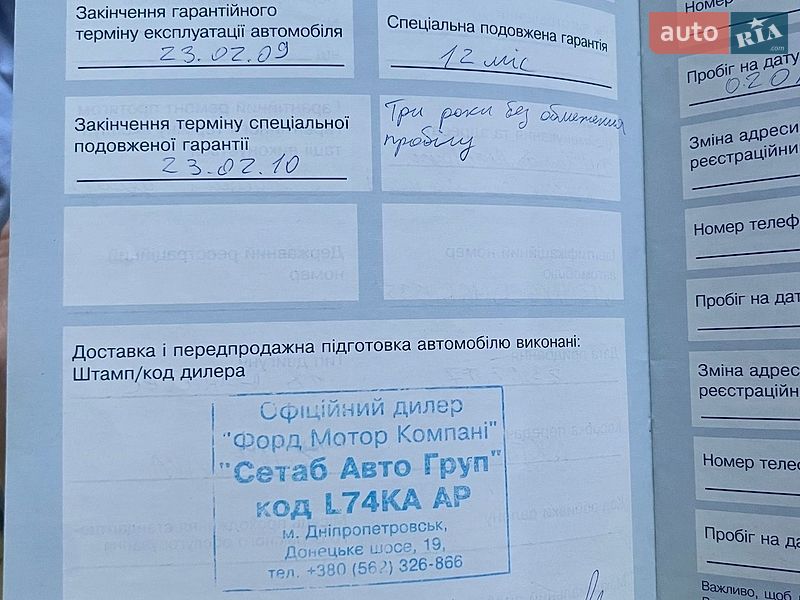 Закінчення гарантійного
терміну експлуатації автомобіля
23.02.09
Спеціальна подовжена гарантія
12 міс
Закінчення терміну спеціальної
подовженої гарантії
23.02.10
Три роки без обмеження
пробігу
Доставка і передпродажна підготовка автомобілю виконані:
Штамп/код дилера
Офіційний дилер
"Форд Мотор Компані"
"Сетаб Авто Груп"
код L74KA AP
м. Дніпропетровськ,
Донецьке шосе, 19,
тел. +380 (562) 326-866
Номер
auto RIA.com
Пробіг на дату
Зміна адреси
реєстраційни
Номер телеф
Пробіг на дат
Зміна адрес
реєстраційн
Номер теле
Пробіг на да
Важливо, щоб